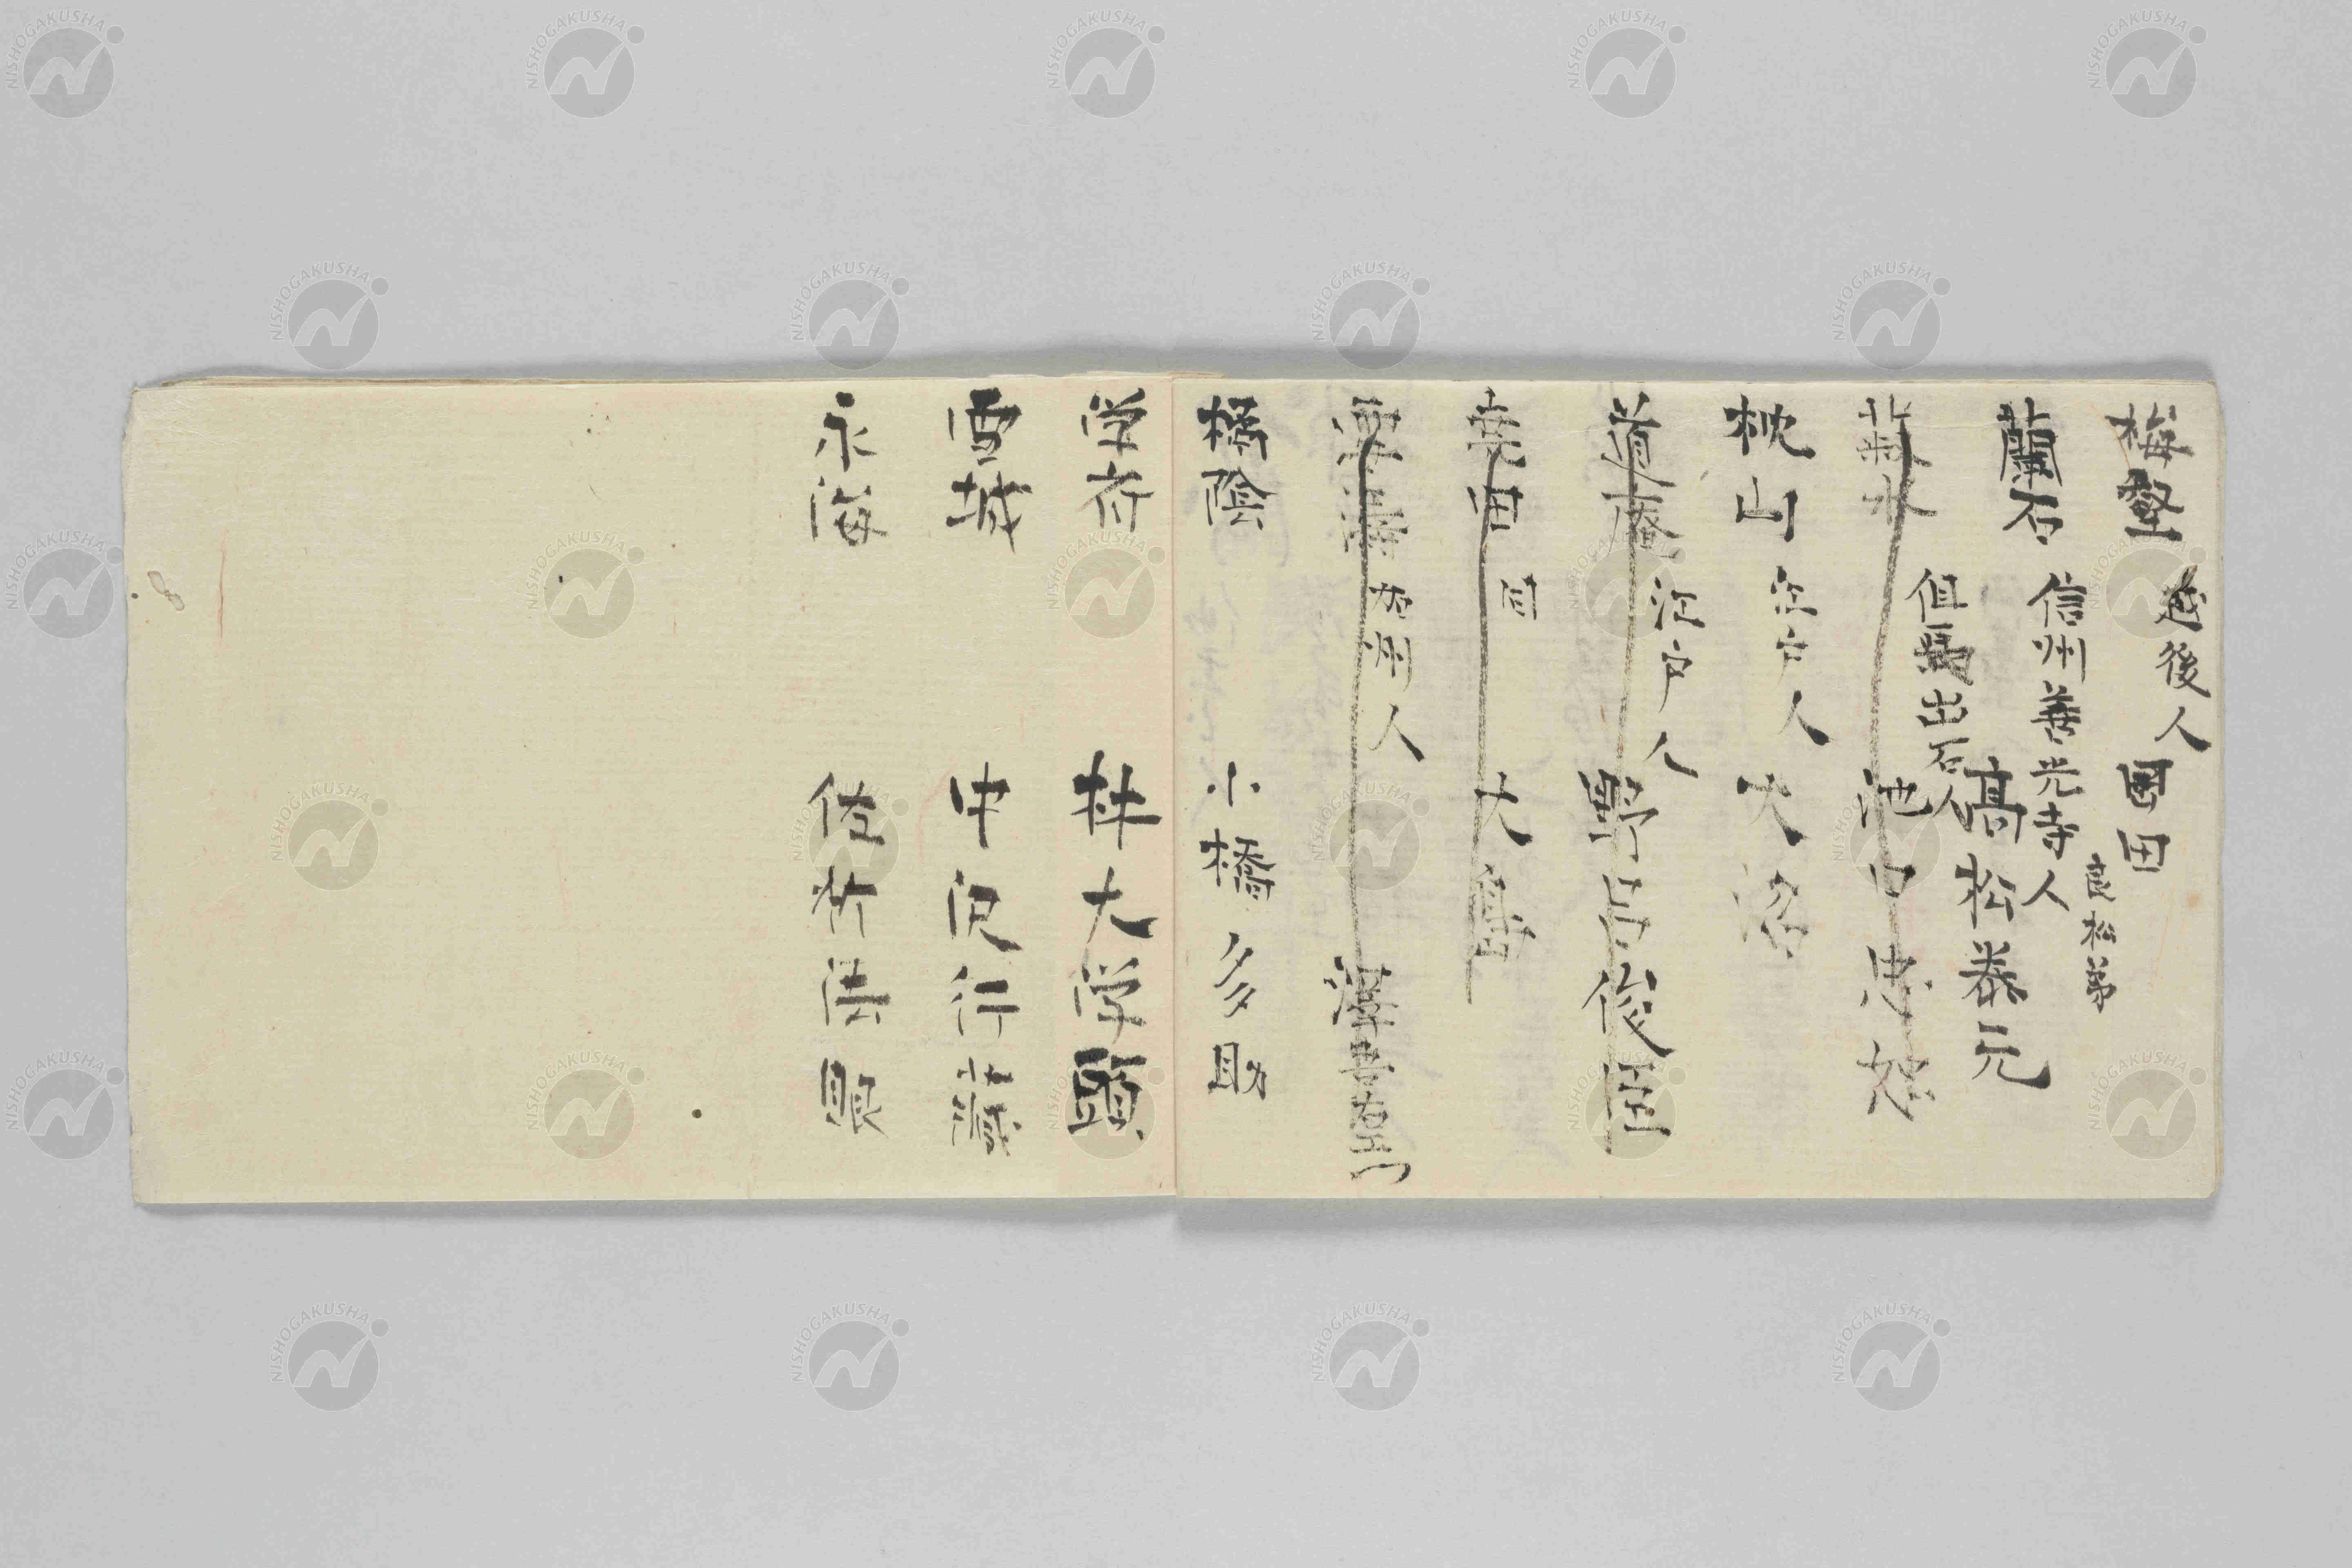 梅壑 越後人 園田
蘭石 信州善光寺人 高松泰元
良松弟
菊水 但馬出石人 池口忠恕
枕山 江戸人 大沼
道庵 江戸人 野呂俊臣
田 同 大
人 澤
橘陰 小橋多助
学斎 林大学頭
雪城 中沢行蔵
永海 佐竹
NISHOGAKUSHA